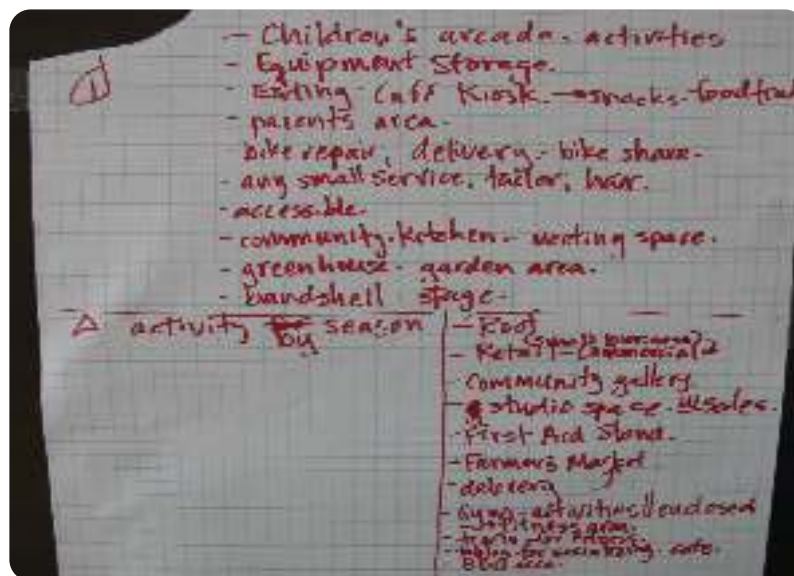 ①
- Children's arcade - activities
- Equipment Storage.
- Eating - Café Kiosk. → snacks - food truck
- parents area -
bike repair, delivery - bike share -
- any small service, tailor, hair.
- accessible.
- community - kitchen - meeting space.
- greenhouse - garden area.
- bandshell stage -
△ activity by season
- Roof
- Retail - (small business) Commercial 2
- community gallery
- studio space - sales.
- First Aid Stand.
- Farmers Market
- delivery
- Gyms - activities enclosed
- fitness area.
- for socializing - cafe.
BBQ area.